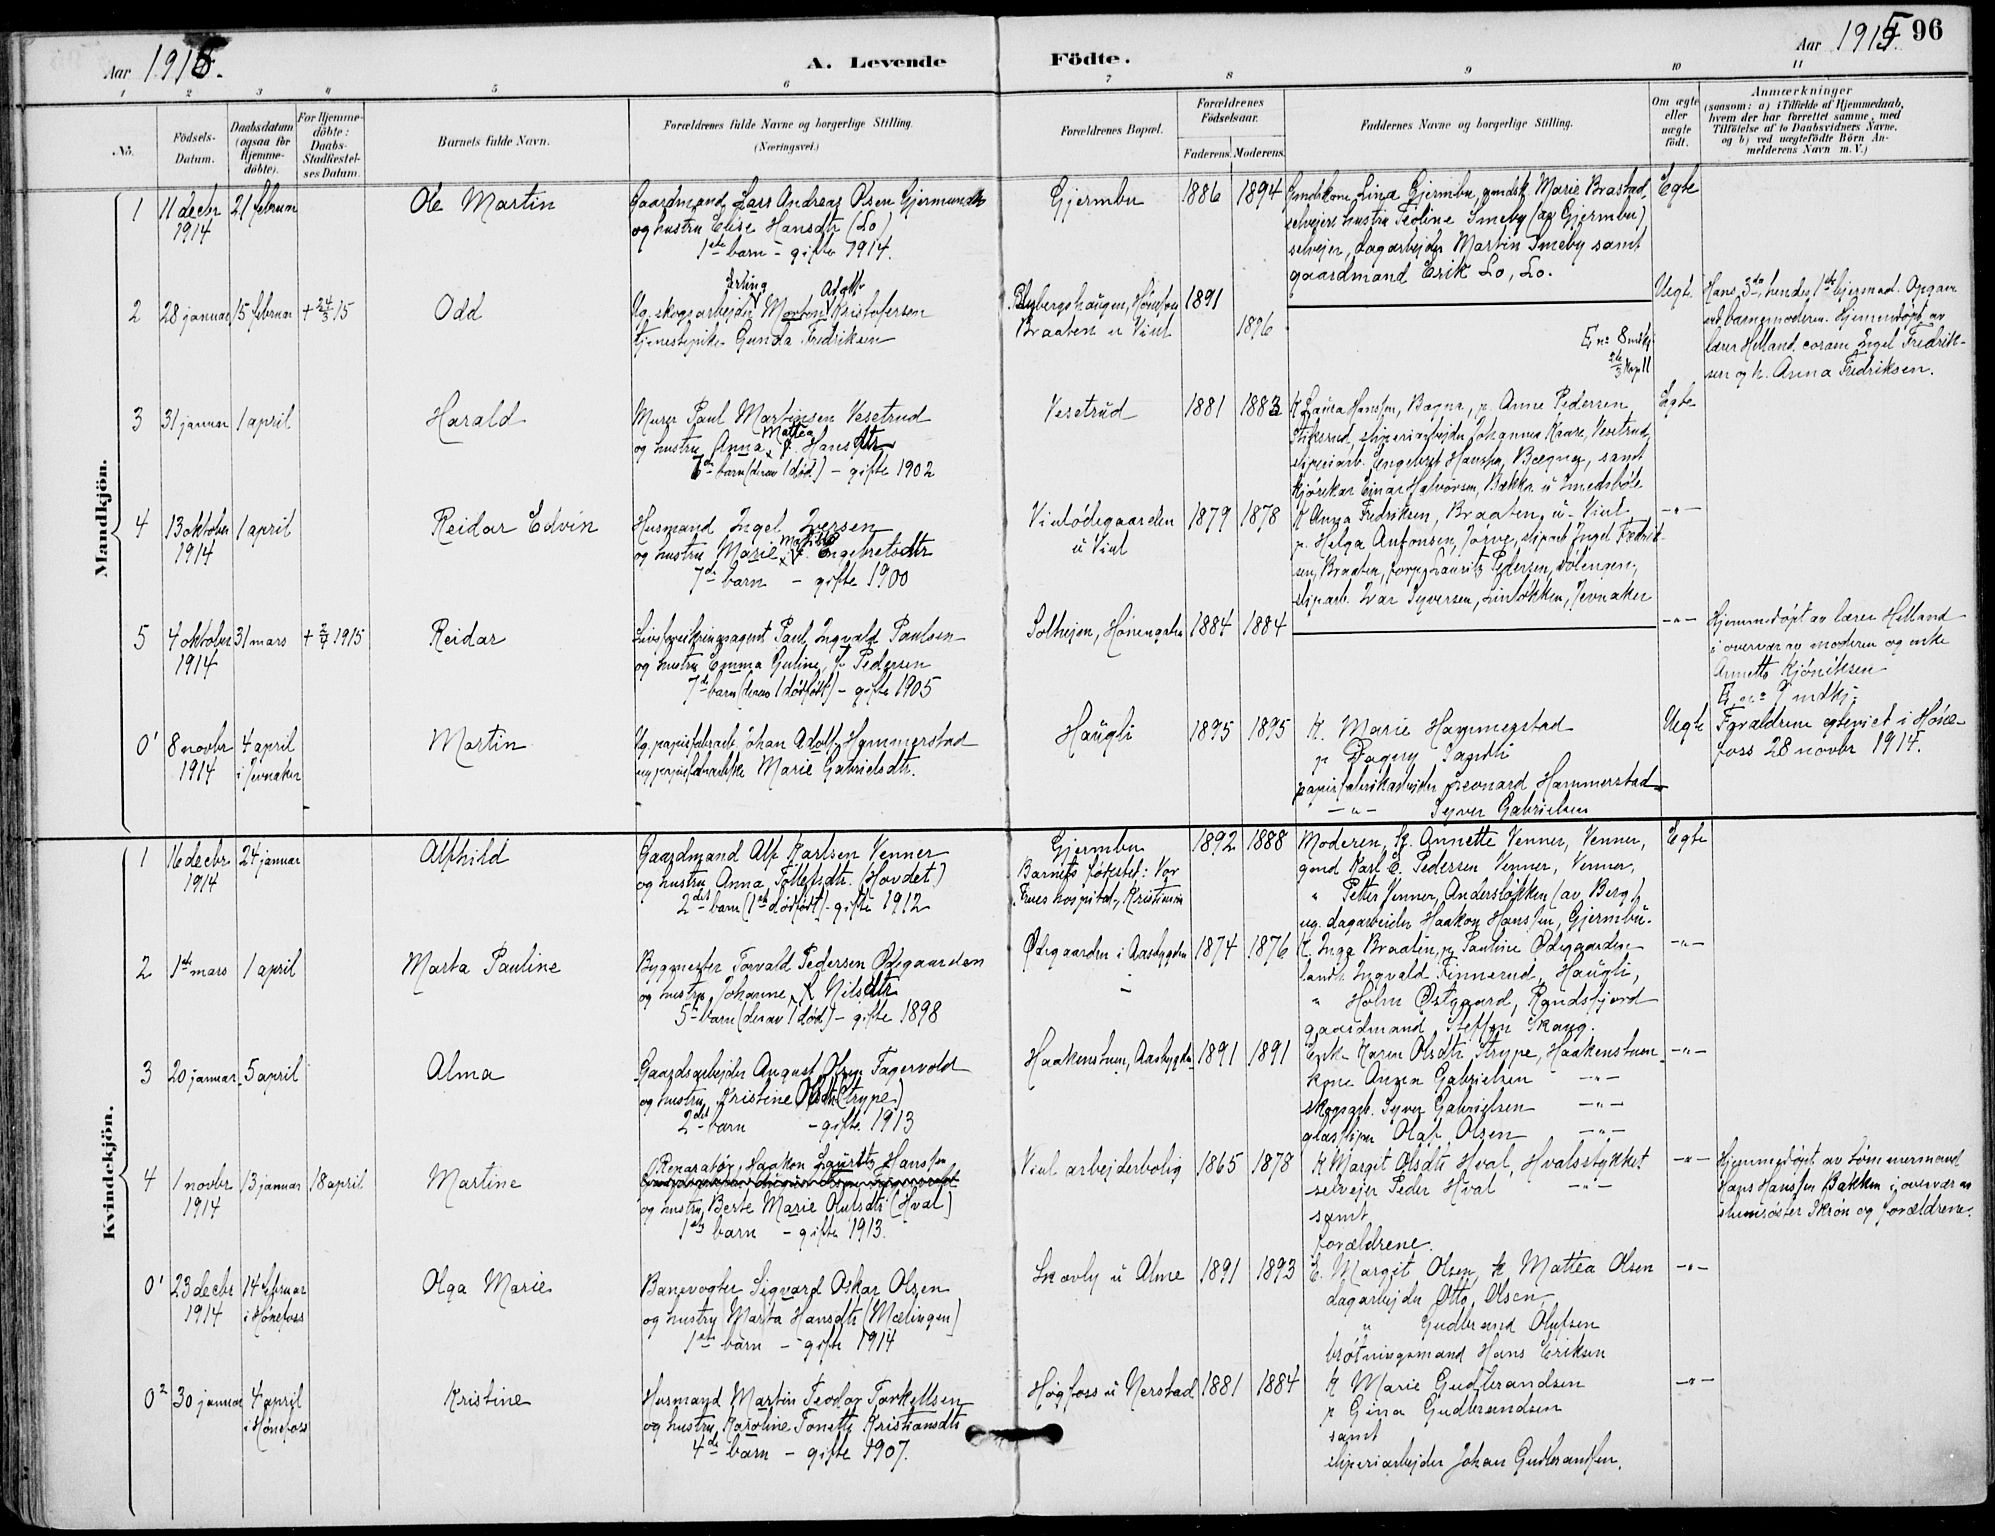 Aar 1915.
A. Levende Födte.
Aar 1915. 96
1 2 3 4 5 6 7 8 9 10 11
No.
Födsels-Datum.
Daabsdatum (ogsaa for Hjemme-döbte).
For Hjemme-döbte: Daabs-Stadfæstel-ses Datum.
Barnets fulde Navn.
Forældrenes fulde Navne og borgerlige Stilling. (Næringsvei.)
Forældrenes Bopæl.
Forældrenes Födselsaar.
Faderens. Moderens.
Faddernes Navne og borgerlige Stilling.
Om ægte eller uægte födt.
Anmærkninger
(saasom: a) i Tilfælde af Hjemmedaab, hvem der har forrettet samme, med Tilföielse af to Daabsvidners Navne. og b) ved uægtefödte Börn An-melderens Navn m. V.)
Mandkjön.
1 11 decbr 1914 21 februar Ole Martin
Gaardmand Lars Andreas Olsen Gjermundbo
og hustru Elise Hansdtr (Lo)
1ste barn - gifte 1914.
Gjermbu 1886 1894
Gmdskone Lina Gjermbu, gmdsk. Marie Brastad,
selveiers hustru Teoline Smeby (av Gjermbu)
selveier, dagarbejder Martin Smeby samt
gaardmand Erik Lo, Lo.
Egte
2 28 januar 15 februar + 24/3 15 Odd
Ug. skogsarbejder Morten Kristofersen
tjenestepike Gunda Fredriksen
Braaten u Vint 1891 1896
E. no 8 mdkj.
Uegt.
Hans 3die, hendes 1ste leiermaal. Opgave
ved barnemoderen. Hjemmedøpt av
lærer Helland, coram Ingel Fredrik-
sen og k. Anna Fredriksen.
3 31 januar 1 april Harald
Murer Paul Martinsen Vesetrud
og hustru Anna Mattea Hansdtr
barn (derav 1 død) - gifte 1902
Vesetrud 1881 1883
K Laura Hanssen, Bægna, p. Anne Pedersen
sliperiarbejder Johannes Kaare, Vesetrud,
sliperiarb. Engebret Hansen, Bægna, samt
kjørekar Einar Halvorsen, Bækka u Smedsbøle
Egte
4 13 oktober 1914 1 april Reidar Edvin
Husmand Ingel Iversen
og hustru Marie Matilde Engebretsdtr
7de barn - gifte 1900
Vintødegaarden u Vint 1879 1878
K Anna Fredriksen, Braaten, u. Vint
p. Helga Antonsen, sliparb. Ingel Fredrik-
sen, Braaten, Laurits Pedersen,
sliparb. Ivar Syversen, Linløkken, Jevnaker
-"-
5 4 oktober 1914 31 mars + 2/4 1915 Reidar
Livsforsikringsagent Paul Ingvald Paulsen
og hustru Emma Guline, f. Pedersen
7de barn (derav 1 dødfødt) - gifte 1905
Solheim, Hønengata 1884 1884
-"-
Hjemmedøpt av lærer Helland
i overvær av moderen og enke
Annette Kjøniksen
E. no 9 mdkj.
0¹ 8 novbr 1914 4 april i Jevnaker Martin
Ug. papirfabrarb. Johan Adolf Hammerstad
og Marie Gabrielsdtr.
Haugli 1895 1895
K. Marie Hammerstad
p Dagny Sandli
papirfabrikarbeider Leonard Hammerstad
-"- Syver Gabrielsen
Uegte
Forældrene egteviet i Høne-
foss 28 novbr 1914.
Kvindekjön.
1 16 decbr 1914 24 januar Alfhild
Gaardmand Alf Karlsen Venner
og hustru Anna Tollefsdtr. (Hovdet)
2det barn (1ste dødfødt) - gifte 1912
Gjermbu
Barnets fødested: Vor
Frues hospital, Kristiania
1892 1888
Moderen, K. Annette Venner, Venner,
gmd Karl E. Pedersen Venner, Venner,
" Petter Venner, Andersløkken (av Berg),
ug. dagarbeider Haakon Hanssen, Gjermbu.
Egte
2 1ste mars 1 april Marta Pauline
Bygmester Torvald Pedersen Ødegaarden
og hustru Johanne K Nilsdtr
5te barn (derav 1 død) - gifte 1898
Ødegaarden i Aasbygden 1874 1876
K. Inga Braaten, p. Pauline Ødegaarden
landh. Ingvald Finnerud, Haugli,
" Holm Østgaard, Randsfjord
gaardmand Steffen Skaug.
-"-
3 20 januar 5 april Alma
Gaardsarbejder August Olsen Fagervold
og hustru Kristine Olsdtr (Strype)
2det barn - gifte 1913
Haakenstuen, Aasbygden 1891 1891
Enk. Karen Olsdtr Strype, Haakenstuen
kone Anna Gabrielsen -"-
skogsarb. Syver Gabrielsen -"-
glassliper Olaf Olsen -"-
-"-
4 1 novbr 1914 13 januar 18 april Martine
Reparatør Haakon Laurits Hanssen
og hustru Berte Marie Olufsdtr (Hval)
1ste barn - gifte 1913.
Vint arbejderbolig 1865 1878
K Margit Olsdtr Hval, Hvalsstykket
selvejer Peder Hval -"-
samt
forældrene.
-"-
Hjemmedøpt av tømmermand
Hans Hanssen Bakken i overvær av
Skrøn og forældrene.
0¹ 23 decbr 1914 14 februar i Hønefoss Olga Marie
Banevogter Sigvard Oskar Olsen
og hustru Marta Hansdtr (Mælingen)
1ste barn - gifte 1914
Skavly u Alme 1891 1893
E. Margit Olsen, K Mattea Olsen
dagarbejder Otto Olsen,
" Gudbrand Olufsen
brøtningsmand Hans Eriksen
-"-
0² 30 januar 4 april i Hønefoss Kristine
Husmand Martin Teodor Torkellsen
og hustru Karoline Tonette Kristiansdtr
4de barn - gifte 1907.
Høgfoss u Nerstad 1881 1884
K Marie Gudbrandsen
p Gina Gudbrandsen
samt
sliperiarbejder Johan Gudbrandsen.
-"-